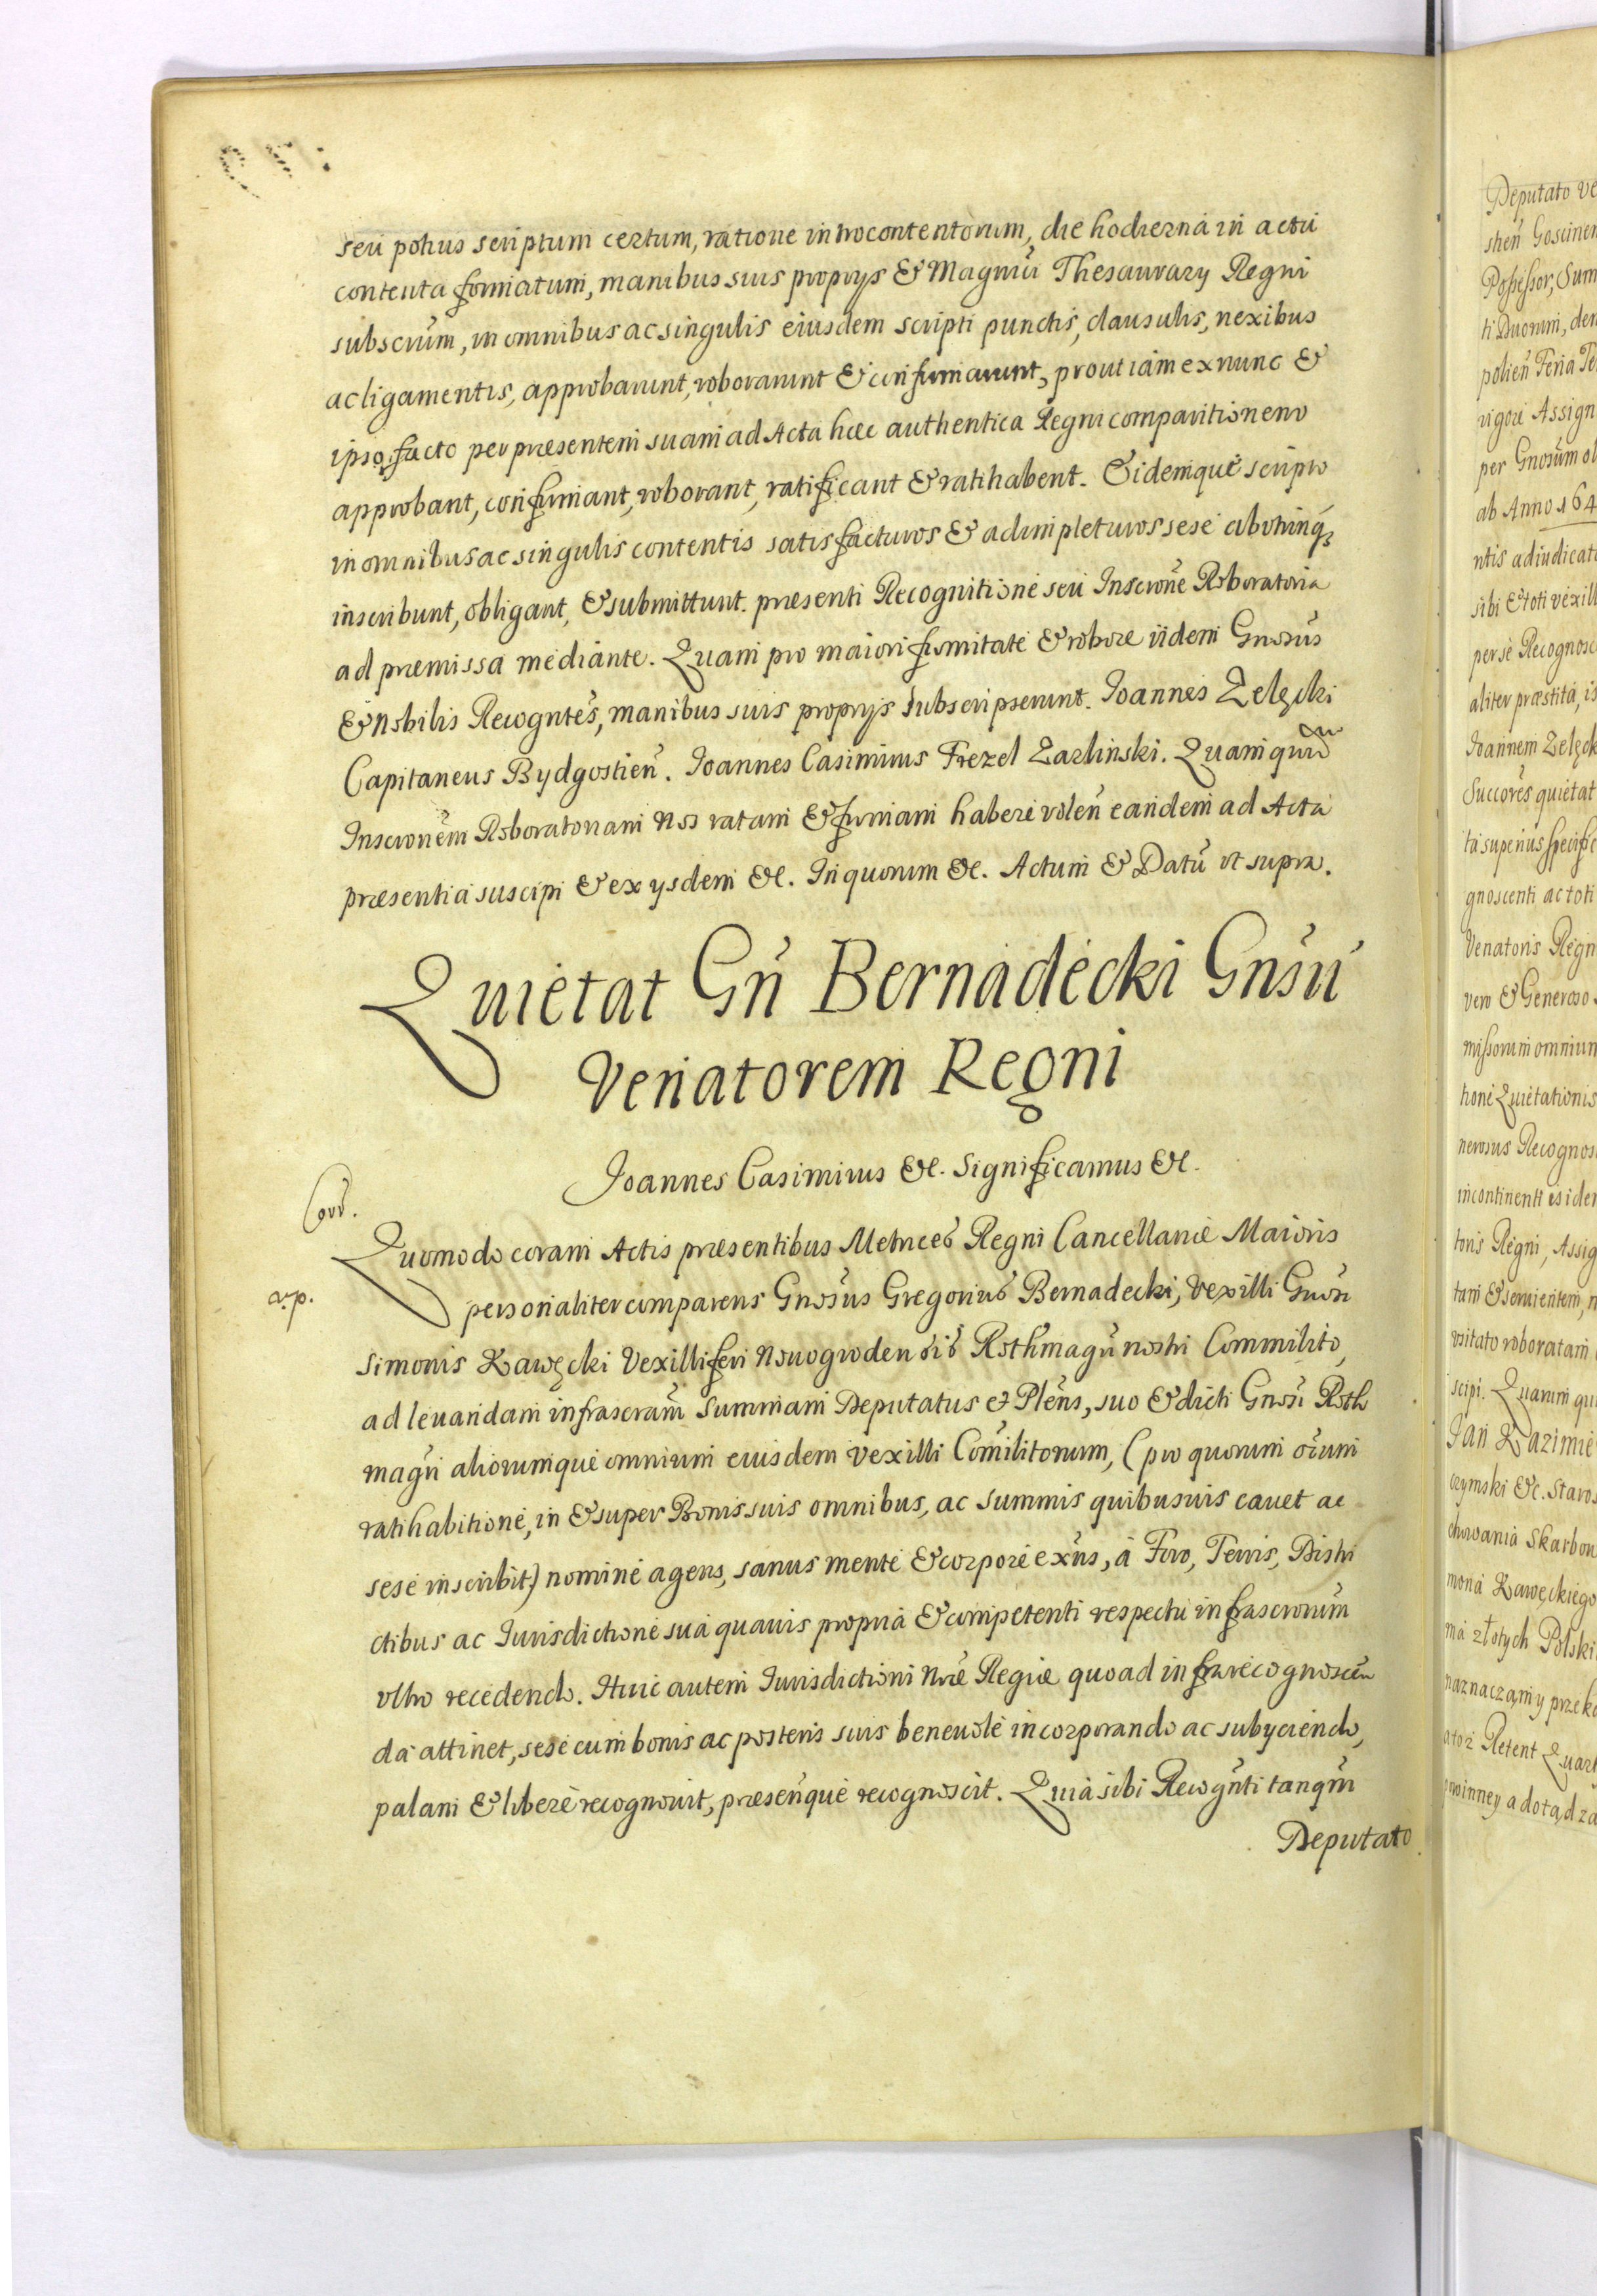 seu potius scriptum certum, ratione introcontentorum, die hodierna in actu
contenta formatum, manibus suis proprys & Magnifici Thesaurary Regni
subscrūm, in omnibus ac singulis eiusdem scripti punctis, clausulis, nexibus
ac ligamentis, approbarunt, roborarunt & confirmarunt, prout iam ex nunc &
ipso facto per præsentem suam ad Acta hæc authentica Regni comparitionem
approbant, confirmant, roborant, ratificant & ratihabent. Eidemque scripto
in omnibus ac singulis contentis satisfacturos & adimpleturos sese utrinq;
inscribunt, obligant, & submittunt. præsenti Recognitione seu Inscrōne Roboratoria
ad præmissa mediante. Quam pro maiori firmitate & robore iidem Gnosus
& Nobilis Recogntes, manibus suis proprys subscripserunt. Joannes Zelęcki
Capitaneus Bydgostień. Joannes Casimirus Frezel Zarlinski. Quam quid
Inscrōnem Roboratoriam Nos ratam & firmam habere voleń eandem ad Acta
præsentia suscipi & ex ysdem &c. In quorum &c. Actum & Datū ut supra.
Quietat Gn̄ Bernadecki Gnsū
Venatorem Regni
Joannes Casimirus &c. Significamus &c.
Cor̄.
Quomodo coram Actis præsentibus Metrices Regni Cancellariæ Maioris
a.p.
personaliter comparens Gnosus Gregorius Bernadecki, Vexilli Gnosi
Simonis Kawęcki Vexilliferi Nouogrodensis Rothmagrī nostri Commilito,
ad leuandam infrascram̄ Summam Deputatus & Plēns, suo & dicti Gnosi Roth
magri aliorumque omnium eiusdem vexilli Com̄ilitonum, (pro quorum oīum
ratihabitione, in & super Bonis suis omnibus, ac summis quibusuis cauet ac
sese inscribit) nomine agens, sanus mente & corpore exns, à Foro, Terris, Distri
ctibus ac Iurisdictione sua quauis propria & competenti respectu infrascrorum̄
ultro recedendo. Huic autem Iurisdictioni Nrae Regiæ quoad infra recognoscen
da attinet, sese cum bonis ac posteris suis beneuole incorporando ac subyciendo,
palam & libere recognouit, præsenque recognoscit. Quia sibi Recognti tanqm̄
Deputato
Deputato
Possessor, Sum
ab Anno 164
ntis adiudicat
sibi & toti vexill
per se Recognosc
aliter præstita, is
Joannem Zelęck
Succores quietat
gnoscenti ac toti
Venatoris Regn
vero & Generoso
missorum omniun
tione Quietationis
nerosus Recognos
incontinenti is ider
toris Regni, Assig
usitato roboratam
scipi. Quarum qui
Jan Kazimie
czynski &c. Staros
chowania Skarbon
mona Kawęckiego
ma złotych Polski
naznaczamy przek
ator Retent Quart
winney a dotąd za